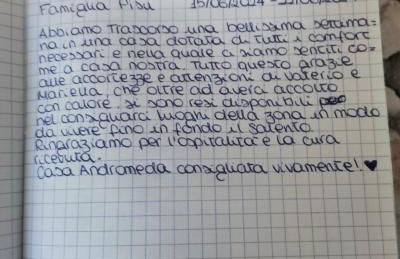 Famiglia Pisu 15/06/2024 - 22/06/
Abbiamo Trascorso una bellissima settima-
na in una casa dotata di tutti i comfort
necessari e nella quale ci siamo sentiti co-
me a casa nostra. Tutto questo grazie
alle accortezze e attenzioni di Valerio e
Mariella, che oltre ad averci accolto
con calore, si sono resi disponibili
nel consigliarci luoghi della zona in modo
da vivere fino in fondo il salento.
Ringraziamo per l'ospitalità e la cura
ricevuta.
Casa Andromeda consigliata vivamente! ♥